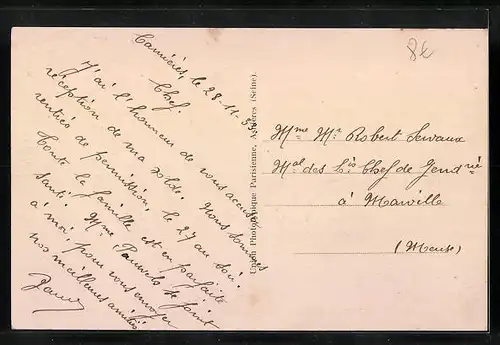 Camières, le 28-11-33
Chef.
J'ai l'honneur de vous accuser
réception de ma solde. Nous sommes
rentrés de permission, le 27 au soir.
Toute la famille est en parfaite
santé. Mme Pauwels se joint
à moi pour vous envoyer
nos meilleures amitiés
Union Photographique Parisienne, Asnières (Seine).
8€
Mme Mr Robert Servaux
Mal des Lis Chef de Gendrie
à Marville
(Meuse)